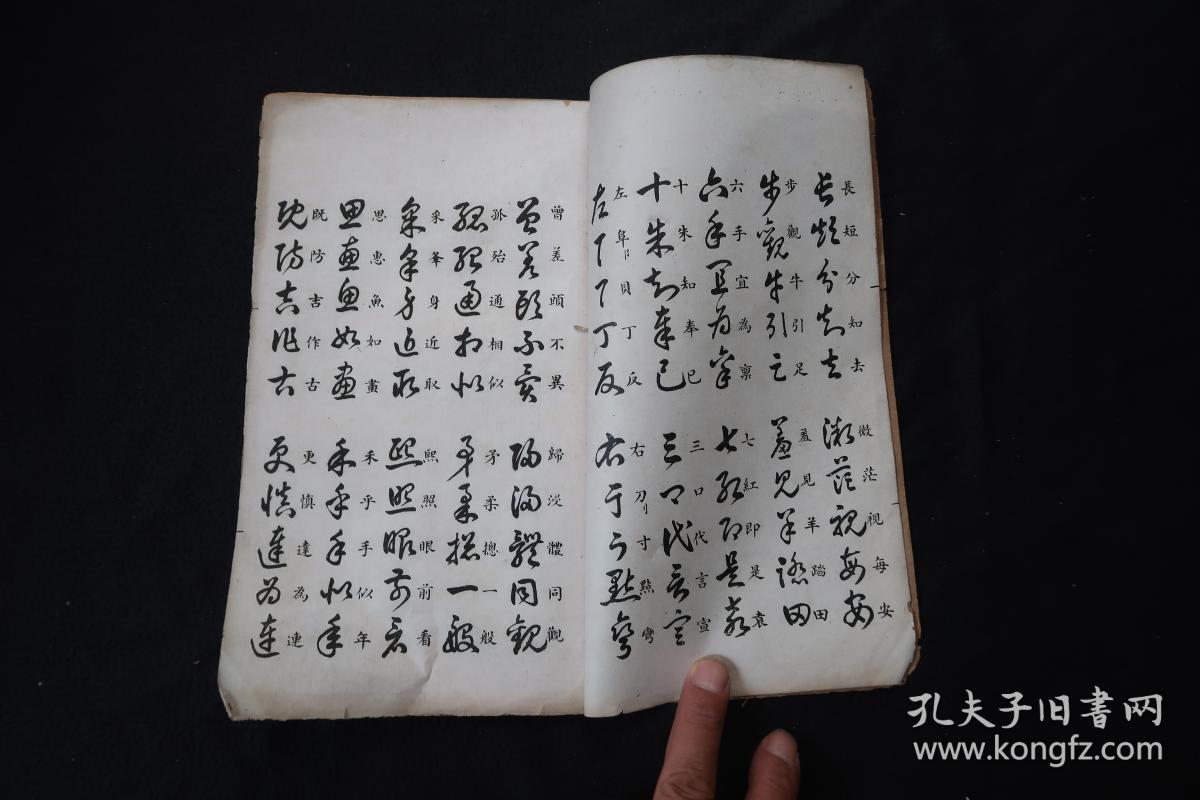 長短分知去 微茫視每安
步觀牛引足 羞見羊踏田
六手宜為稟 七紅即是袁
十朱知奉已 三口代言宣
左阜阝貝丁反 右刀刂寸點彎
曾差頭不異 歸浸體同觀
孤殆通相似 矛柔摠一般
采夆身近取 熙照眼前看
思惠魚如畫 禾乎手似年
既防吉作古 更慎達為連
孔夫子旧書网
www.kongfz.com